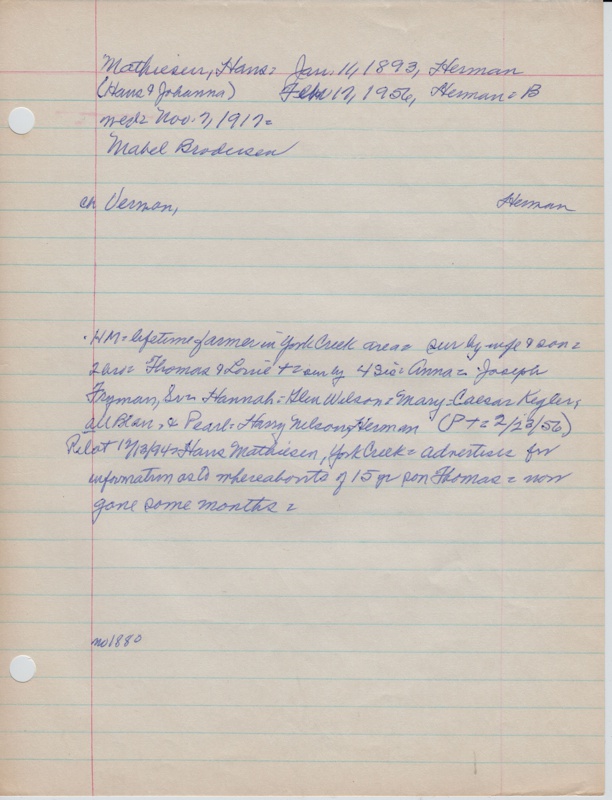 Mathiesen, Hans = Jan. 11, 1893, Herman
(Hans & Johanna) Feb 17, 1956, Herman = B
wed = Nov. 7, 1917 =
Mabel Brodersen
ch Vernon, Herman
. HM = lifetime farmer in York Creek area = sur by wife & son =
2 bro = Thomas & Louie + = sur by 4 sis = Anna = Joseph
Fryman, Sr = Hannah = Glen Wilson = Mary = Caesar Kegler,
all Blair, & Pearl = Harry Nelson, Herman (P + = 2/23/56)
Pilot 12/13/94 = Hans Mathiesen, York Creek = advertises for
information as to whereabouts of 15 yr son Thomas = now
gone some months =
no 1880